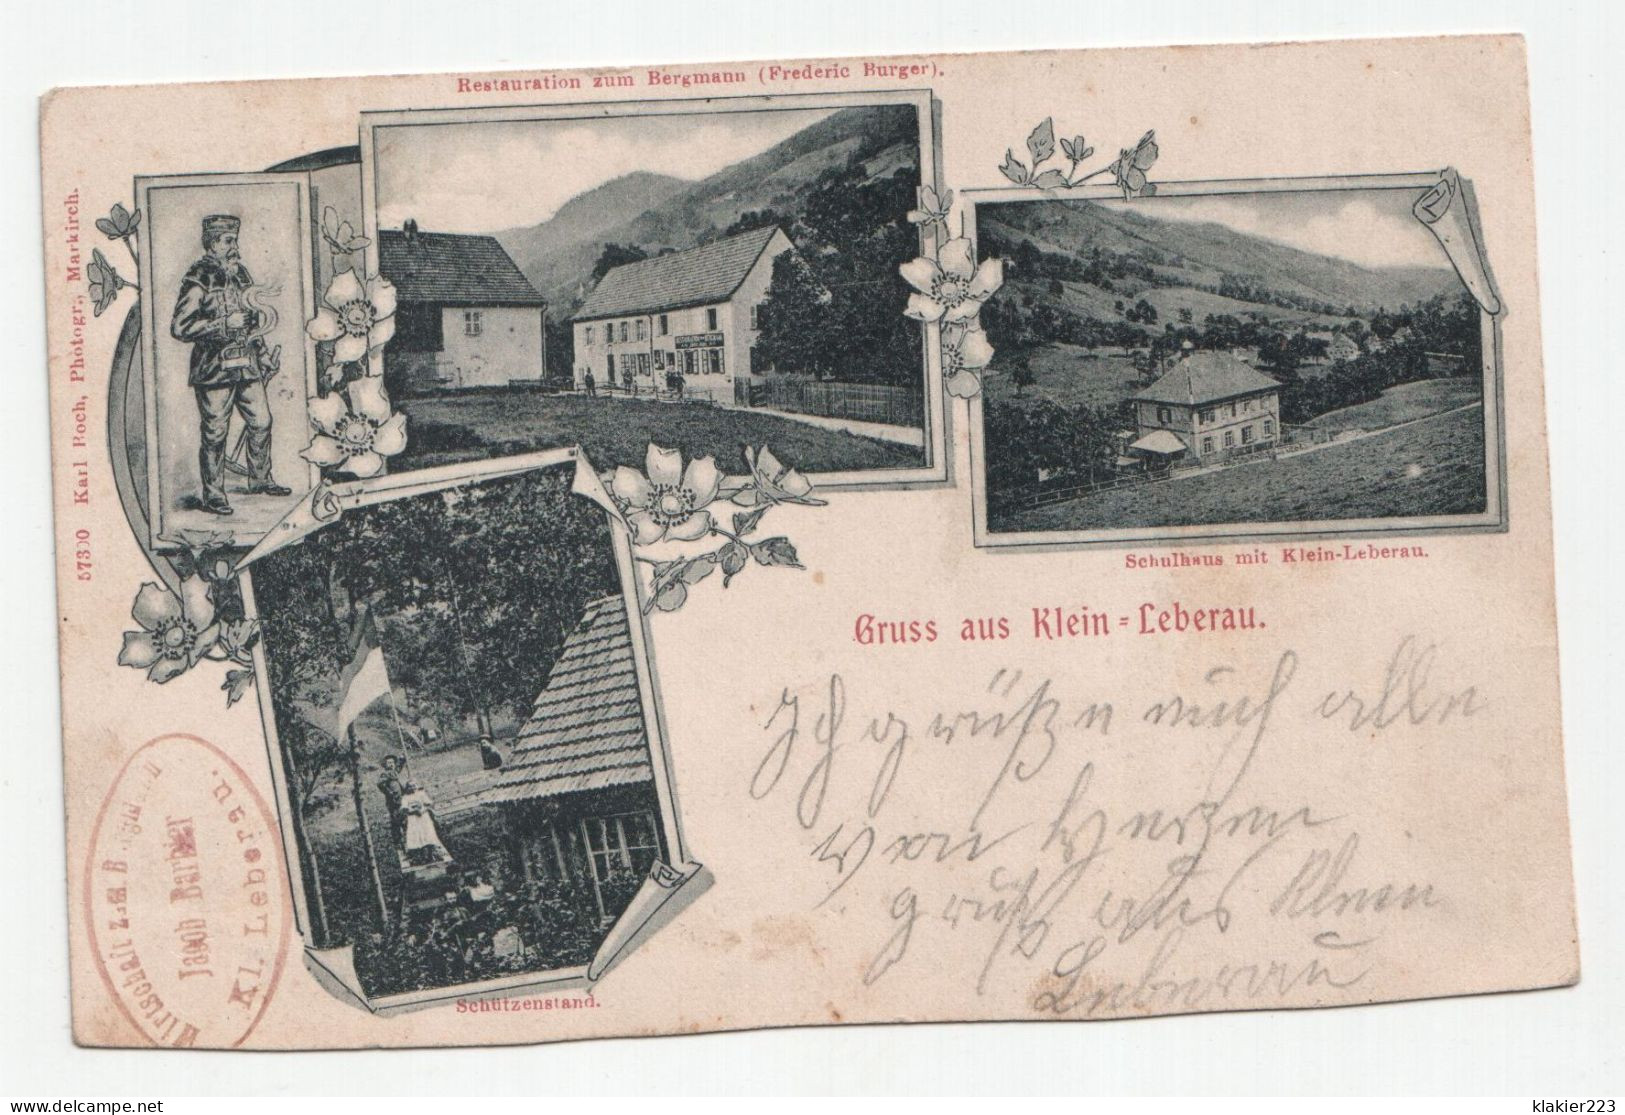 Restauration zum Bergmann (Frederic Burger).
57300 Karl Roch, Photogr., Markirch.
Schulhaus mit Klein-Leberau.
Gruss aus Klein-Leberau.
Ich grüße euch alle
von Herzen
gruß aus Klein
Leberau
Schützenstand.
Wirtschaft zum
Jacob Barbier
Kl. Leberau.
klakier223